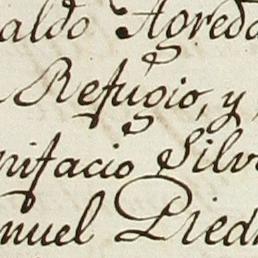 aldo Agredo
Refugio, y
nifacio Silv
nuel Pied